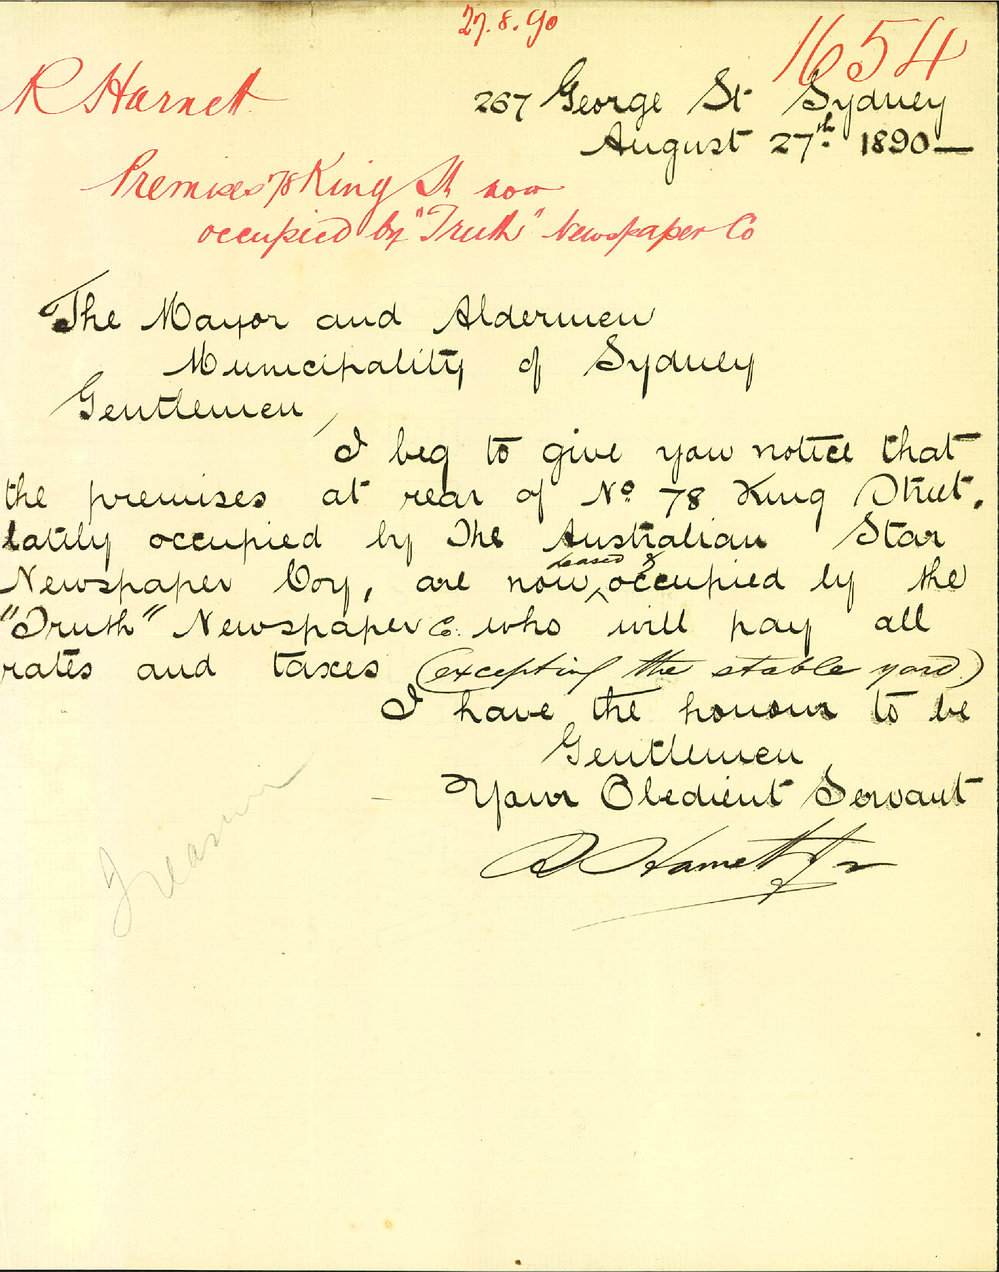 27.8.90
1654
R Harnett
267 George St Sydney
August 27th. 1890—
Premises 78 King St now
occupied by "Truth" Newspaper Co
The Mayor and Aldermen
Municipality of Sydney
Gentlemen,
I beg to give you notice that
the premises at rear of No 78 King Street,
lately occupied by The Australian Star
leased &
Newspaper Coy, are now ^ occupied by the
"Truth" Newspaper Co. who will pay all
rates and taxes (excepting the stable yard)
I have the honour to be
Gentlemen
Your Obedient Servant
R Harnett Jr